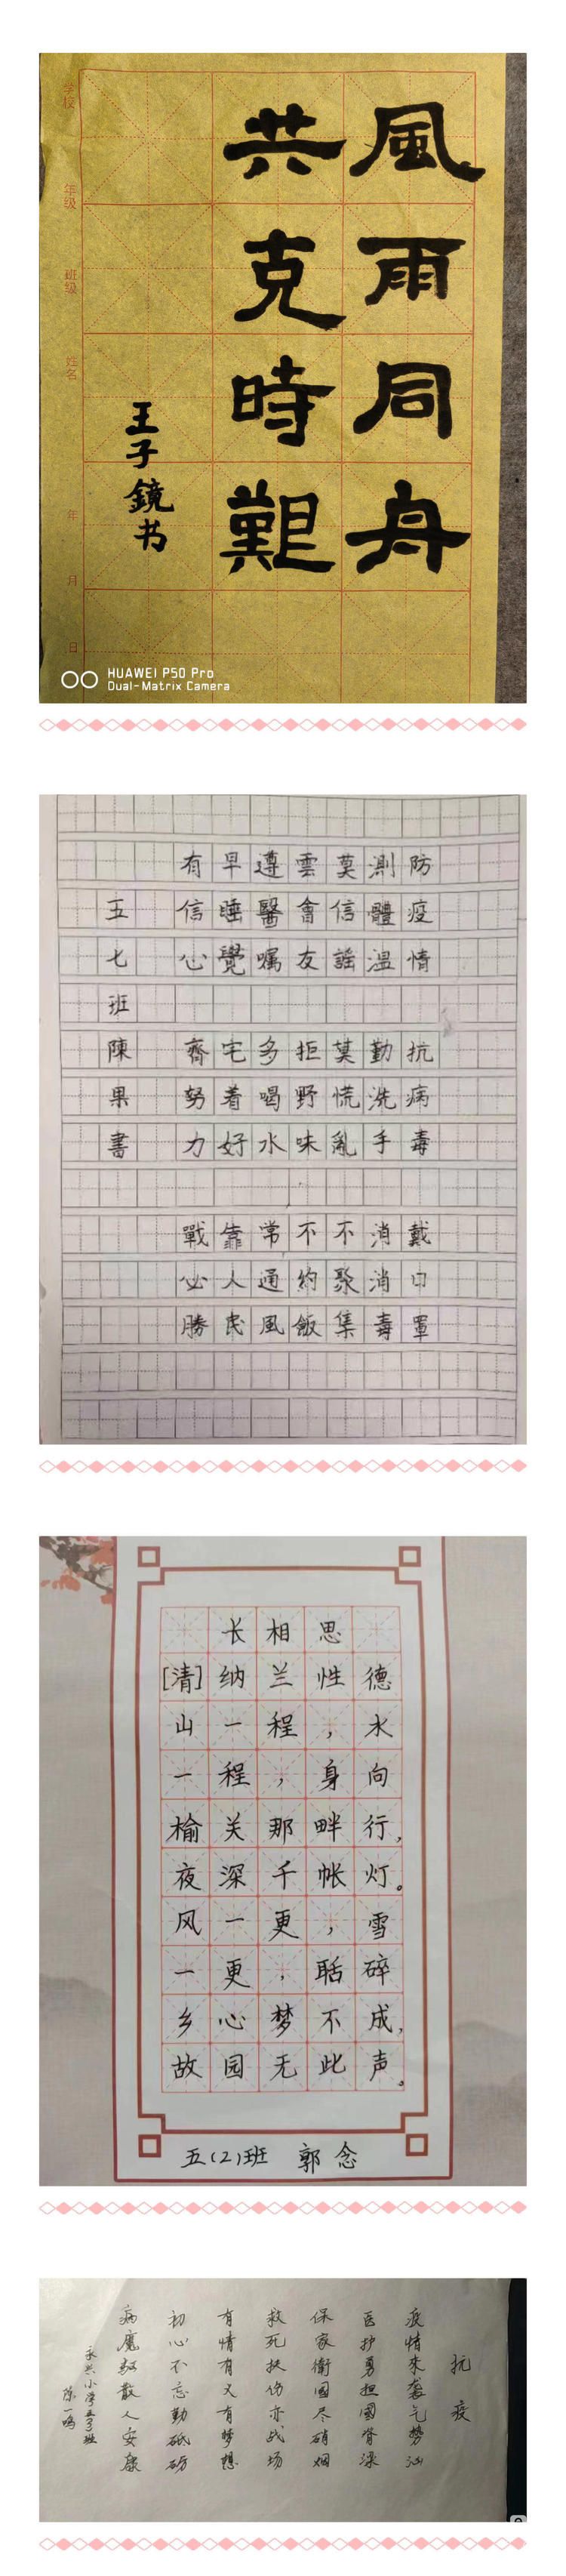 風雨同舟
共克時艱
王子鏡书
学校 年级 班级 姓名 年 月 日
HUAWEI P50 Pro
Dual-Matrix Camera
防疫情 抗病毒 戴口罩
測體温 勤洗手 消消毒
莫信謡 莫慌亂 不聚集
雲會友 拒野味 不約飯
遵醫嘱 多喝水 常通風
早睡覺 宅着好 靠人民
有信心 齊努力 戰必勝
五七班 陳果書
长相思
[清]纳兰性德
山一程，水
一程，身向
榆关那畔行，
夜深千帐灯。
风一更，雪
一更，聒碎
乡心梦不成，
故园无此声。
五(2)班 郭念
抗疫
疫情来袭气势汹
医护勇担國脊梁
保家衛國尽硝烟
救死扶伤亦战场
有情有义有梦想
初心不忘勤砥砺
病魔驱散人安康
永兴小学五3班
陈一鸣